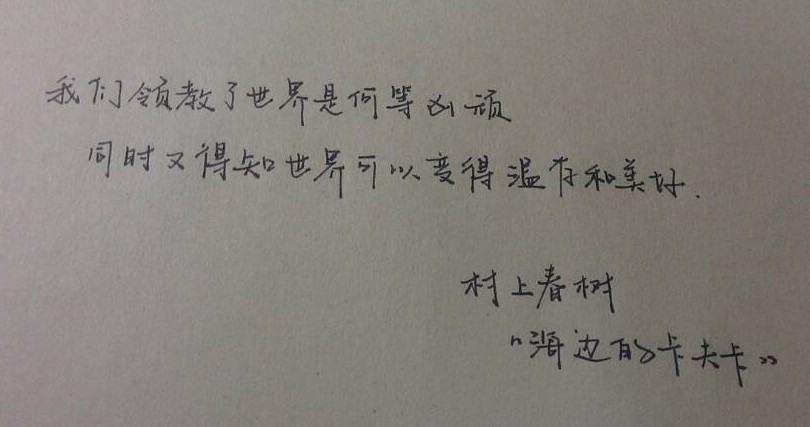 我们领教了世界是何等凶顽
同时又得知世界可以变得温存和美好.
村上春树
"海边的卡夫卡"